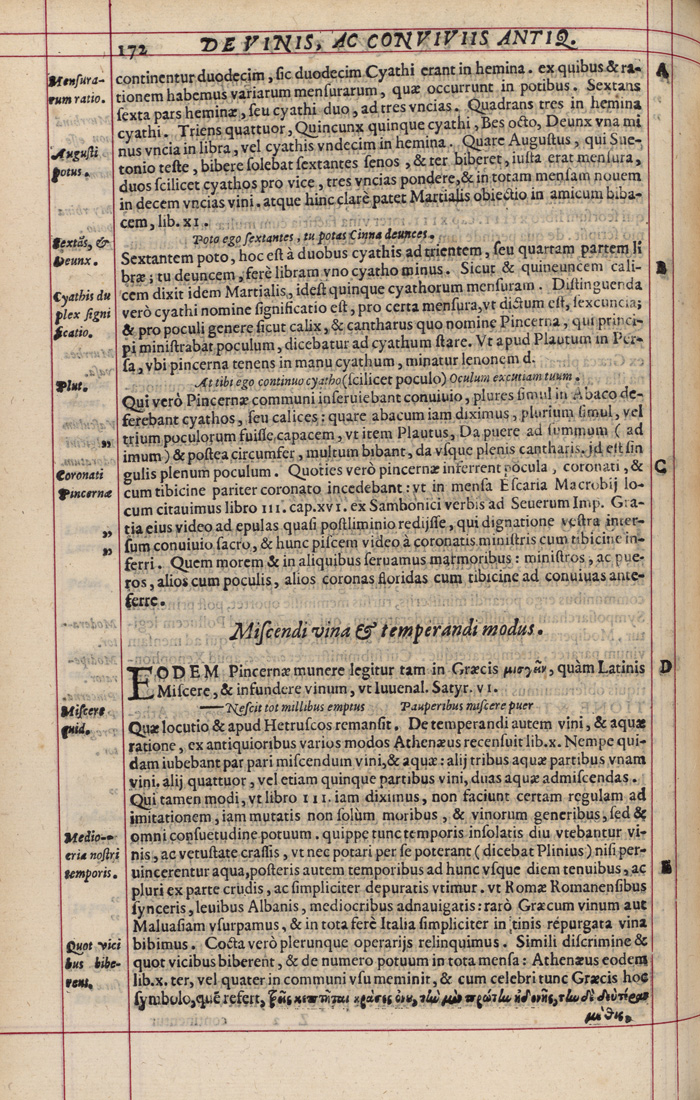 172 DE VINIS, AC CONVIVIIS ANTIQ.
Mensura-
rum ratio.
Augusti
potus.
Sextās, &
Deunx.
Cyathis du
plex signi
ficatio.
Plut.
„
Coronati
Pincernæ
„
„
Miscere
quid.
Medio-
cria nostri
temporis.
Quot vici
bus bibe-
rent.
A
B
C
D
E
continentur duodecim, sic duodecim Cyathi erant in hemina. ex quibus & ra-
tionem habemus variarum mensurarum, quæ occurrunt in potibus. Sextans
sexta pars heminæ, seu cyathi duo, ad tres vncias. Quadrans tres in hemina
cyathi. Triens quattuor, Quincunx quinque cyathi, Bes octo, Deunx vna mi
nus vncia in libra, vel cyathis vndecim in hemina. Quare Augustus, qui Sue-
tonio teste, bibere solebat sextantes senos, & ter biberet, iusta erat mensura,
duos scilicet cyathos pro vice, tres vncias pondere, & in totam mensam nouem
in decem vncias vini. atque hinc clarè patet Martialis obiectio in amicum biba-
cem, lib. XI.
Poto ego sextantes, tu potas Cinna deunces.
Sextantem poto, hoc est à duobus cyathis ad trientem, seu quartam partem li
bræ; tu deuncem, ferè libram vno cyatho minus. Sicut & quincuncem cali-
cem dixit idem Martialis, idest quinque cyathorum mensuram. Distinguenda
verò cyathi nomine significatio est, pro certa mensura, vt dictum est, sexcuncia;
& pro poculi genere sicut calix, & cantharus quo nomine Pincerna, qui princi-
pi ministrabat poculum, dicebatur ad cyathum stare. Vt apud Plautum in Per-
sa, vbi pincerna tenens in manu cyathum, minatur lenonem d.
At tibi ego continuo cyatho (scilicet poculo) Oculum excutiam tuum.
Qui verò Pincernæ communi inseruiebant conuiuio, plures simul in Abaco de-
ferebant cyathos, seu calices: quare abacum iam diximus, plurium simul, vel
trium poculorum fuisse capacem, vt item Plautus, Da puere ad summum (ad
imum) & postea circumfer, multum bibant, da vsque plenis cantharis. jd est sin
gulis plenum poculum. Quoties verò pincernæ inferrent pocula, coronati, &
cum tibicine pariter coronato incedebant: vt in mensa Escaria Macrobij lo-
cum citauimus libro III. cap. XVI. ex Sambonici verbis ad Seuerum Imp. Gra-
tia eius video ad epulas quasi postliminio redijsse, qui dignatione vestra inter-
sum conuiuio sacro, & hunc piscem video à coronatis ministris cum tibicine in-
ferri. Quem morem & in aliquibus seruamus marmoribus: ministros, ac pue-
ros, alios cum poculis, alios coronas floridas cum tibicine ad conuiuas ante-
ferre.
Miscendi vina & temperandi modus.
EODEM Pincernæ munere legitur tam in Græcis μισγᾶν, quàm Latinis
Miscere, & infundere vinum, vt Iuuenal. Satyr. VI.
—Nescit tot millibus emptus Pauperibus miscere puer
Quæ locutio & apud Hetruscos remansit. De temperandi autem vini, & aquæ
ratione, ex antiquioribus varios modos Athenæus recensuit lib. X. Nempe qui-
dam iubebant par pari miscendum vini, & aquæ: alij tribus aquæ partibus vnam
vini. alij quattuor, vel etiam quinque partibus vini, duas aquæ admiscendas.
Qui tamen modi, vt libro III. iam diximus, non faciunt certam regulam ad
imitationem, iam mutatis non solùm moribus, & vinorum generibus, sed &
omni consuetudine potuum. quippe tunc temporis insolatis diu vtebantur vi-
nis, ac vetustate crassis, vt nec potari per se poterant (dicebat Plinius) nisi per-
uincerentur aqua, posteris autem temporibus ad hunc vsque diem tenuibus, ac
pluri ex parte crudis, ac simpliciter depuratis vtimur. vt Romæ Romanensibus
synceris, leuibus Albanis, mediocribus adnauigatis: rarò Græcum vinum aut
Maluasiam vsurpamus, & in tota ferè Italia simpliciter in tinis repurgata vina
bibimus. Cocta verò plerunque operarijs relinquimus. Simili discrimine &
quot vicibus biberent, & de numero potuum in tota mensa: Athenæus eodem
lib. X. ter, vel quater in communi vsu meminit, & cum celebri tunc Græcis hoc
symbolo, quē refert,